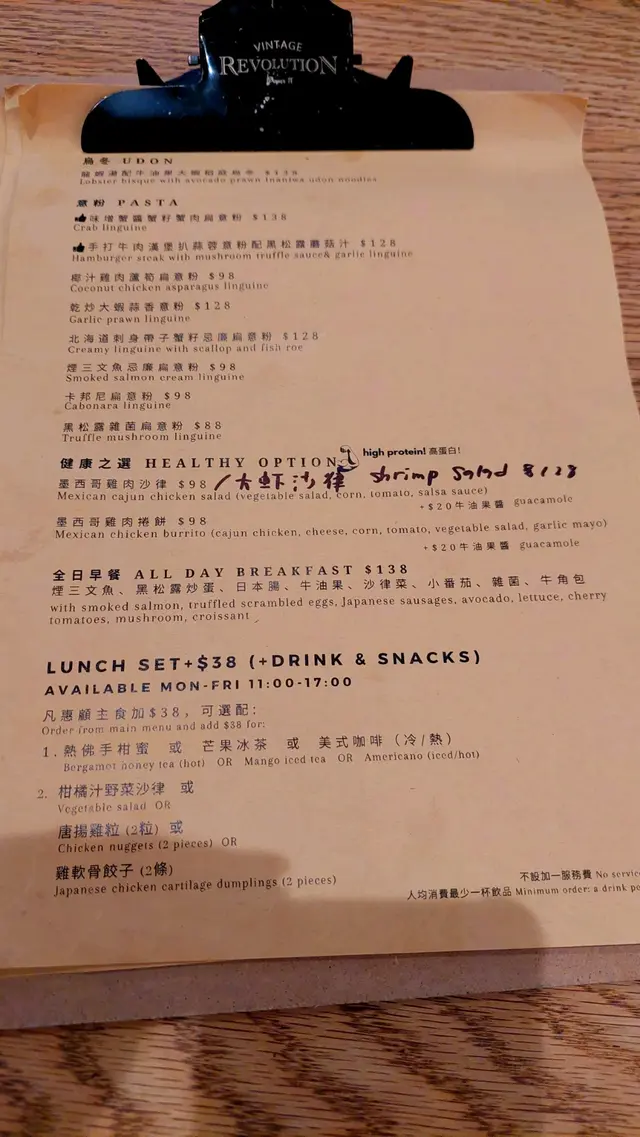 VINTAGE
REVOLUTION
烏冬 UDON
龍蝦湯配牛油果大蝦稻庭烏冬 $138
Lobster bisque with avocado prawn Inaniwa udon noodles
意粉 PASTA
味增蟹醬蟹籽蟹肉扁意粉 $138
Crab linguine
手打牛肉漢堡扒蒜蓉意粉配黑松露蘑菇汁 $128
Hamburger steak with mushroom truffle sauce& garlic linguine
椰汁雞肉蘆筍扁意粉 $98
Coconut chicken asparagus linguine
乾炒大蝦蒜香意粉 $128
Garlic prawn linguine
北海道刺身帶子蟹籽忌廉扁意粉 $128
Creamy linguine with scallop and fish roe
煙三文魚忌廉扁意粉 $98
Smoked salmon cream linguine
卡邦尼扁意粉 $98
Cabonara linguine
黑松露雜菌扁意粉 $88
Truffle mushroom linguine
健康之選 HEALTHY OPTION high protein! 高蛋白!
墨西哥雞肉沙律 $98 /大虾沙律 shrimp salad $128
Mexican cajun chicken salad (vegetable salad, corn, tomato, salsa sauce)
+$20牛油果醬 guacamole
墨西哥雞肉捲餅 $98
Mexican chicken burrito (cajun chicken, cheese, corn, tomato, vegetable salad, garlic mayo)
+$20牛油果醬 guacamole
全日早餐 ALL DAY BREAKFAST $138
煙三文魚、黑松露炒蛋、日本腸、牛油果、沙律菜、小番茄、雜菌、牛角包
with smoked salmon, truffled scrambled eggs, Japanese sausages, avocado, lettuce, cherry
tomatoes, mushroom, croissant
LUNCH SET+$38 (+DRINK & SNACKS)
AVAILABLE MON-FRI 11:00-17:00
凡惠顧主食加$38，可選配：
Order from main menu and add $38 for:
1. 熱佛手柑蜜 或 芒果冰茶 或 美式咖啡（冷/熱）
Bergamot honey tea (hot) OR Mango iced tea OR Americano (iced/hot)
2. 柑橘汁野菜沙律 或
Vegetable salad OR
唐揚雞粒 (2粒) 或
Chicken nuggets (2 pieces) OR
雞軟骨餃子 (2條)
Japanese chicken cartilage dumplings (2 pieces)
不設加一服務費 No servic
人均消費最少一杯飲品 Minimum order: a drink pe